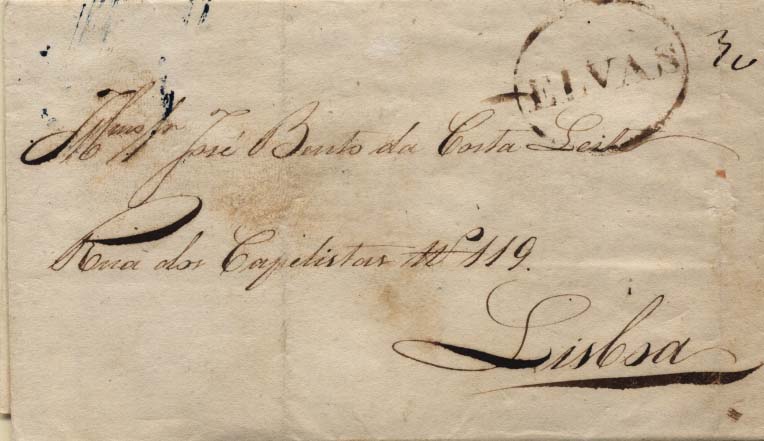 ELVAS
Sr. José Bento da Costa Leite
Rua dos Capelistas Nº 119.
Lisboa